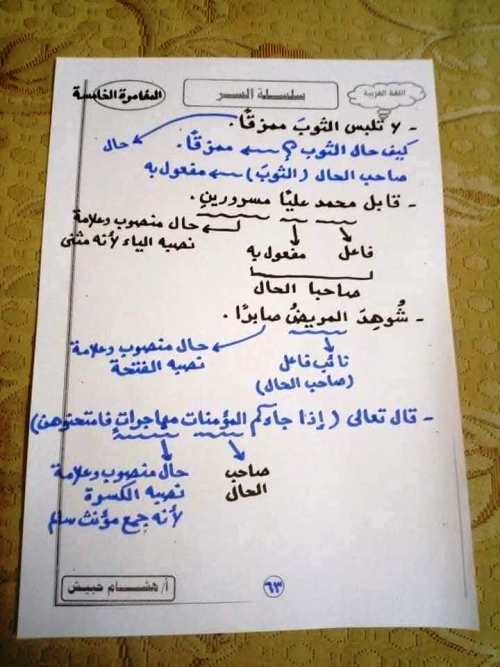 اللغة العربية
سلسلة السر
المغامرة الخامسة
- لا تلبس الثوبَ ممزقًا.
كيف حال الثوب ؟ ممزقًا. حال
صاحب الحال (الثوبَ) مفعول به
- قابل محمد عليًا مسرورين.
فاعل مفعول به حال منصوب وعلامة
نصبه الياء لأنه مثنى
صاحبا الحال
- شُوهِدَ المريضُ صابرًا.
نائب فاعل حال منصوب وعلامة
(صاحب الحال) نصبه الفتحة
- قال تعالى (إذا جاءكم المؤمنات مهاجراتٍ فامتحنوهن)
صاحب حال منصوب وعلامة
الحال نصبه الكسرة
لأنه جمع مؤنث سالم
٦٣
أ/ هشام حبيش